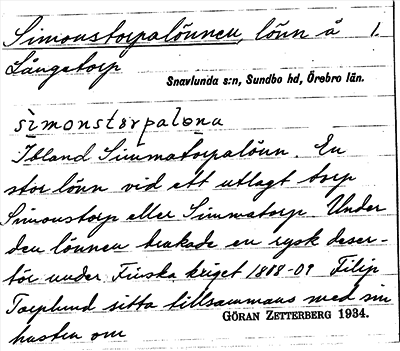 Simonstorpalönnen, lönn å 1.
Långetorp
Snavlunda s:n, Sundbo hd, Örebro län.
simonstørpaløna
Ibland Simmatorpalönn. En
stor lönn vid ett utlagt torp
Simonstorp eller Simmatorp. Under
den lönnen brukade en rysk deser-
tör under Finska kriget 1808-09 Filip
Torplund sitta tillsammans med sin
hustru om
GÖRAN ZETTERBERG 1934.